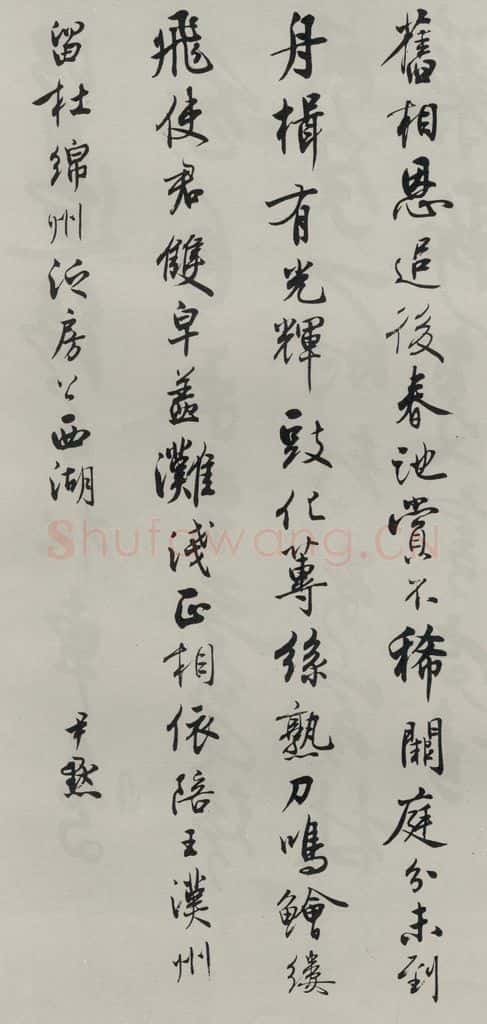 舊相恩追後春池賞不稀闕庭分未到
舟楫有光輝豉化蓴絲熟刀鳴鱠縷
飛使君雙皁蓋灘淺正相依陪王漢州
留杜綿州泛房公西湖
尹默
Shufawang.cn